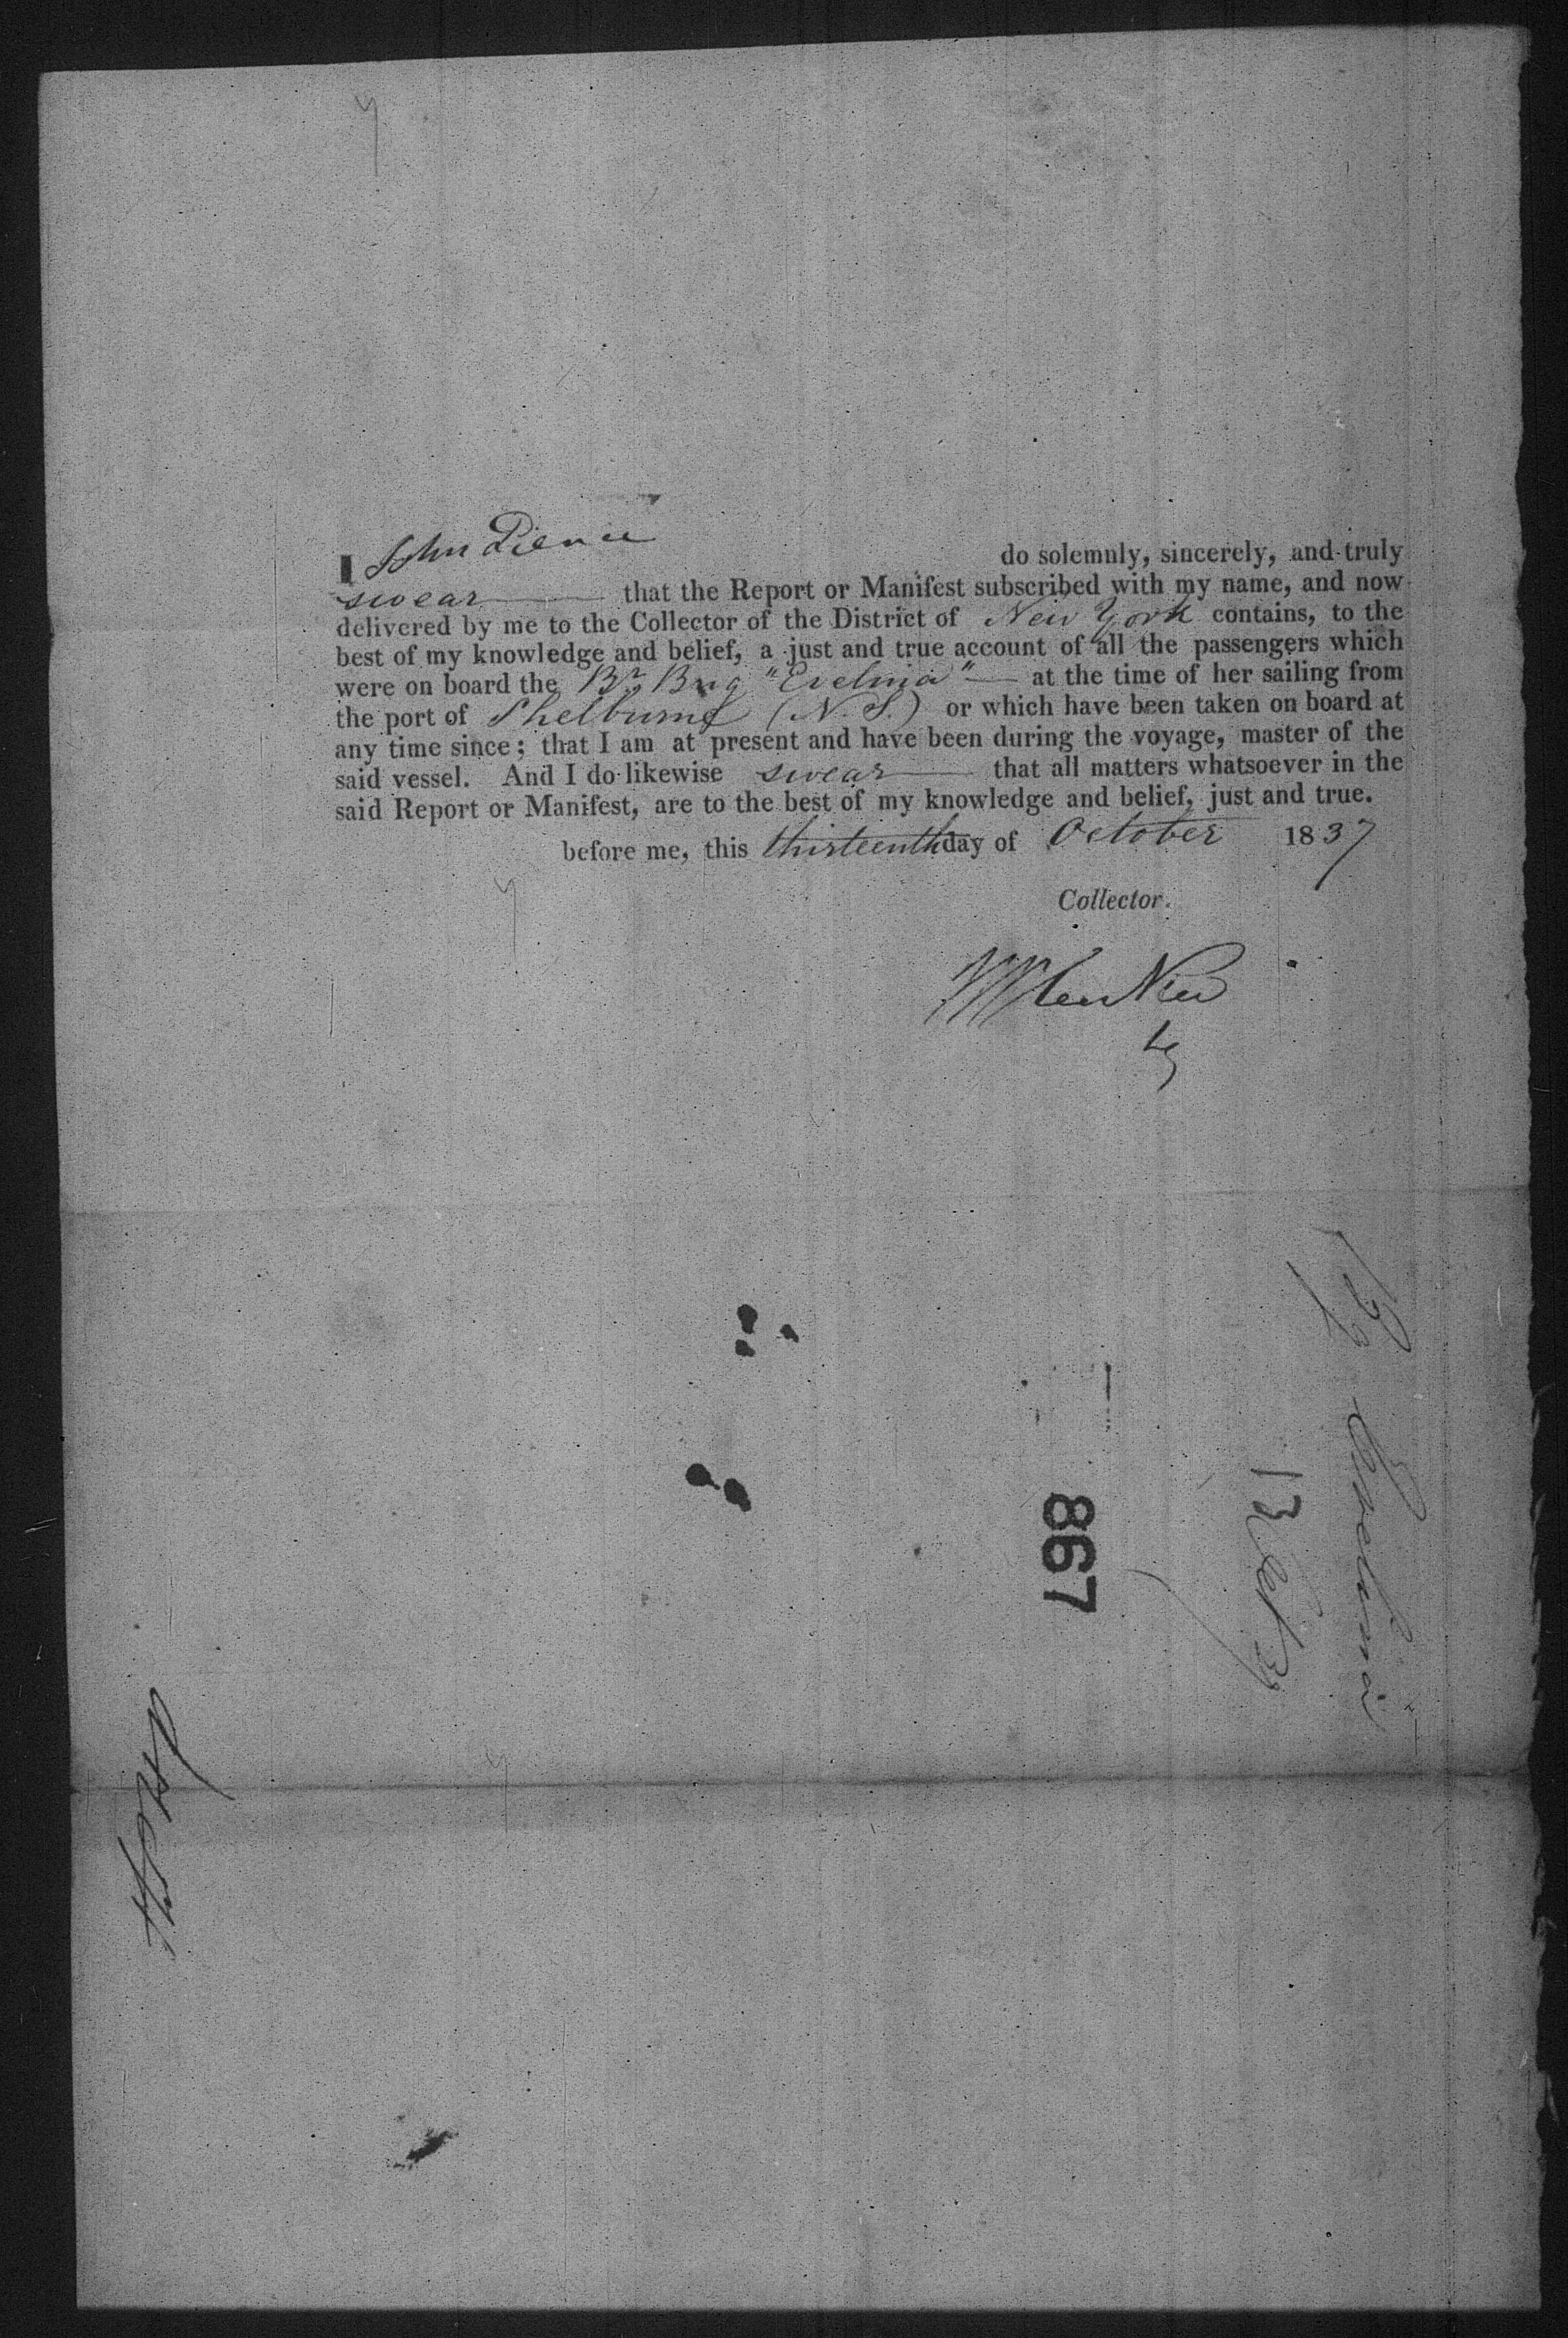 I John Pierce do solemnly, sincerely, and truly
swear that the Report or Manifest subscribed with my name, and now
delivered by me to the Collector of the District of New York contains, to the
best of my knowledge and belief, a just and true account of all the passengers which
were on board the Br Brig "Evelina" at the time of her sailing from
the port of Shelburne (N.S.) or which have been taken on board at
any time since; that I am at present and have been during the voyage, master of the
said vessel. And I do likewise swear that all matters whatsoever in the
said Report or Manifest, are to the best of my knowledge and belief, just and true.
before me, this thirteenth day of October 1837
Collector.
Evelina
13 Oct 37
867